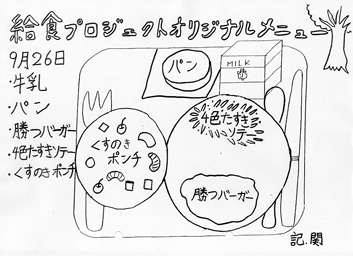 給食プロジェクトオリジナルメニュー
9月26日
・牛乳
・パン
・勝つバーガー
・4色たすきソテー
・くすのきポンチ
パン
MILK
4色たすき
ソテー
くすのき
ポンチ
勝つバーガー
記.関